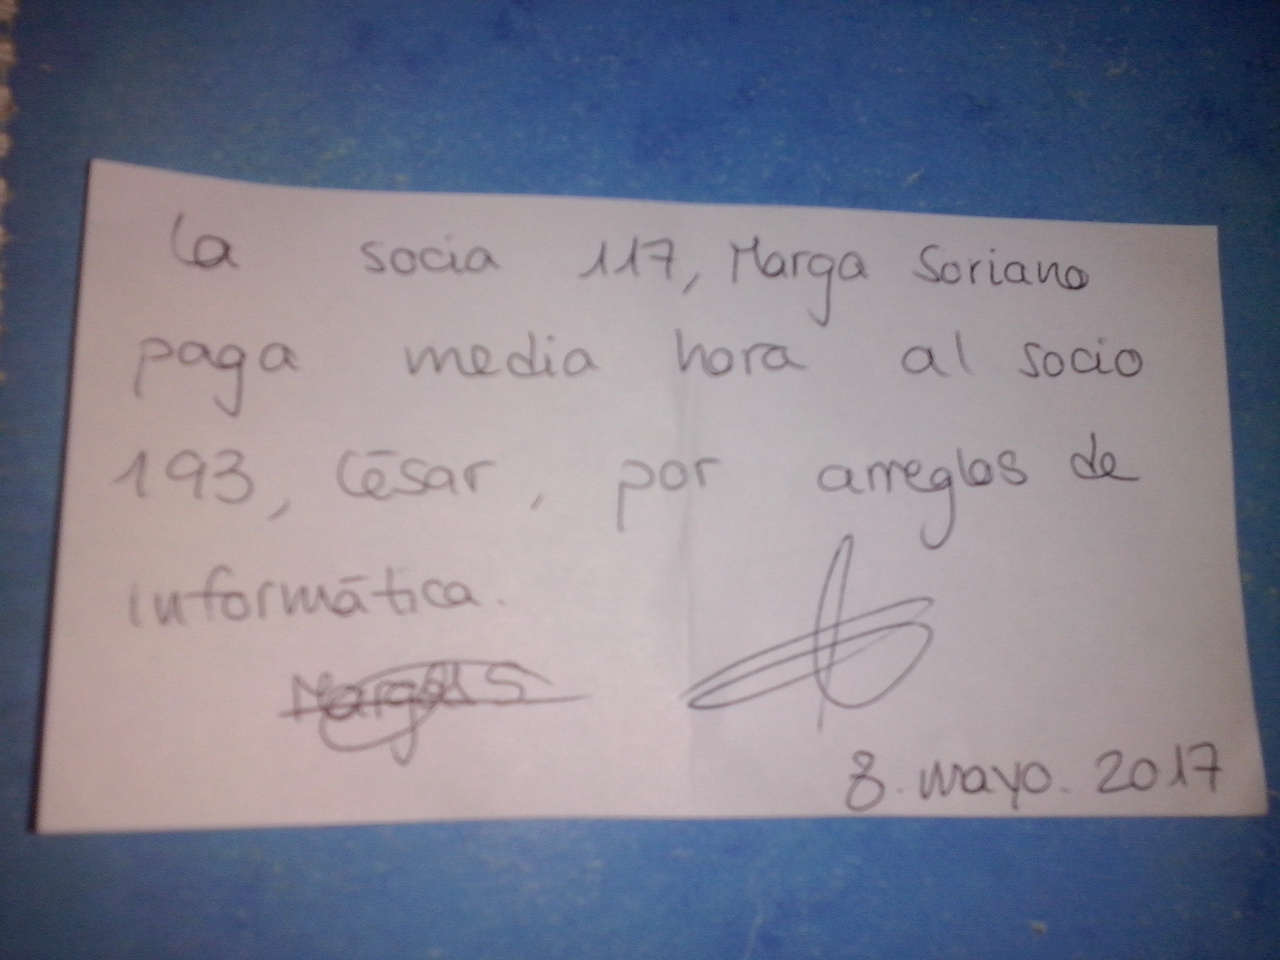 La socia 117, Marga Soriano
paga media hora al socio
193, César, por arreglos de
informática.
Marga S
8. mayo. 2017